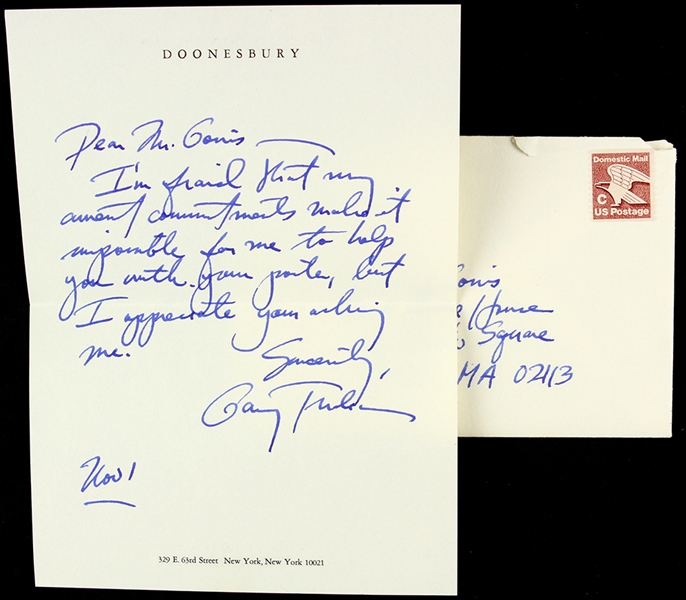 DOONESBURY
Dear Mr. Gonis —
I'm afraid that my
current commitments make it
impossible for me to help
you with your poster, but
I appreciate your asking
me.
Sincerely,
Garry Trudeau
Nov 1
329 E. 63rd Street New York, New York 10021
Domestic Mail
C
US Postage
House
Square
MA 02113